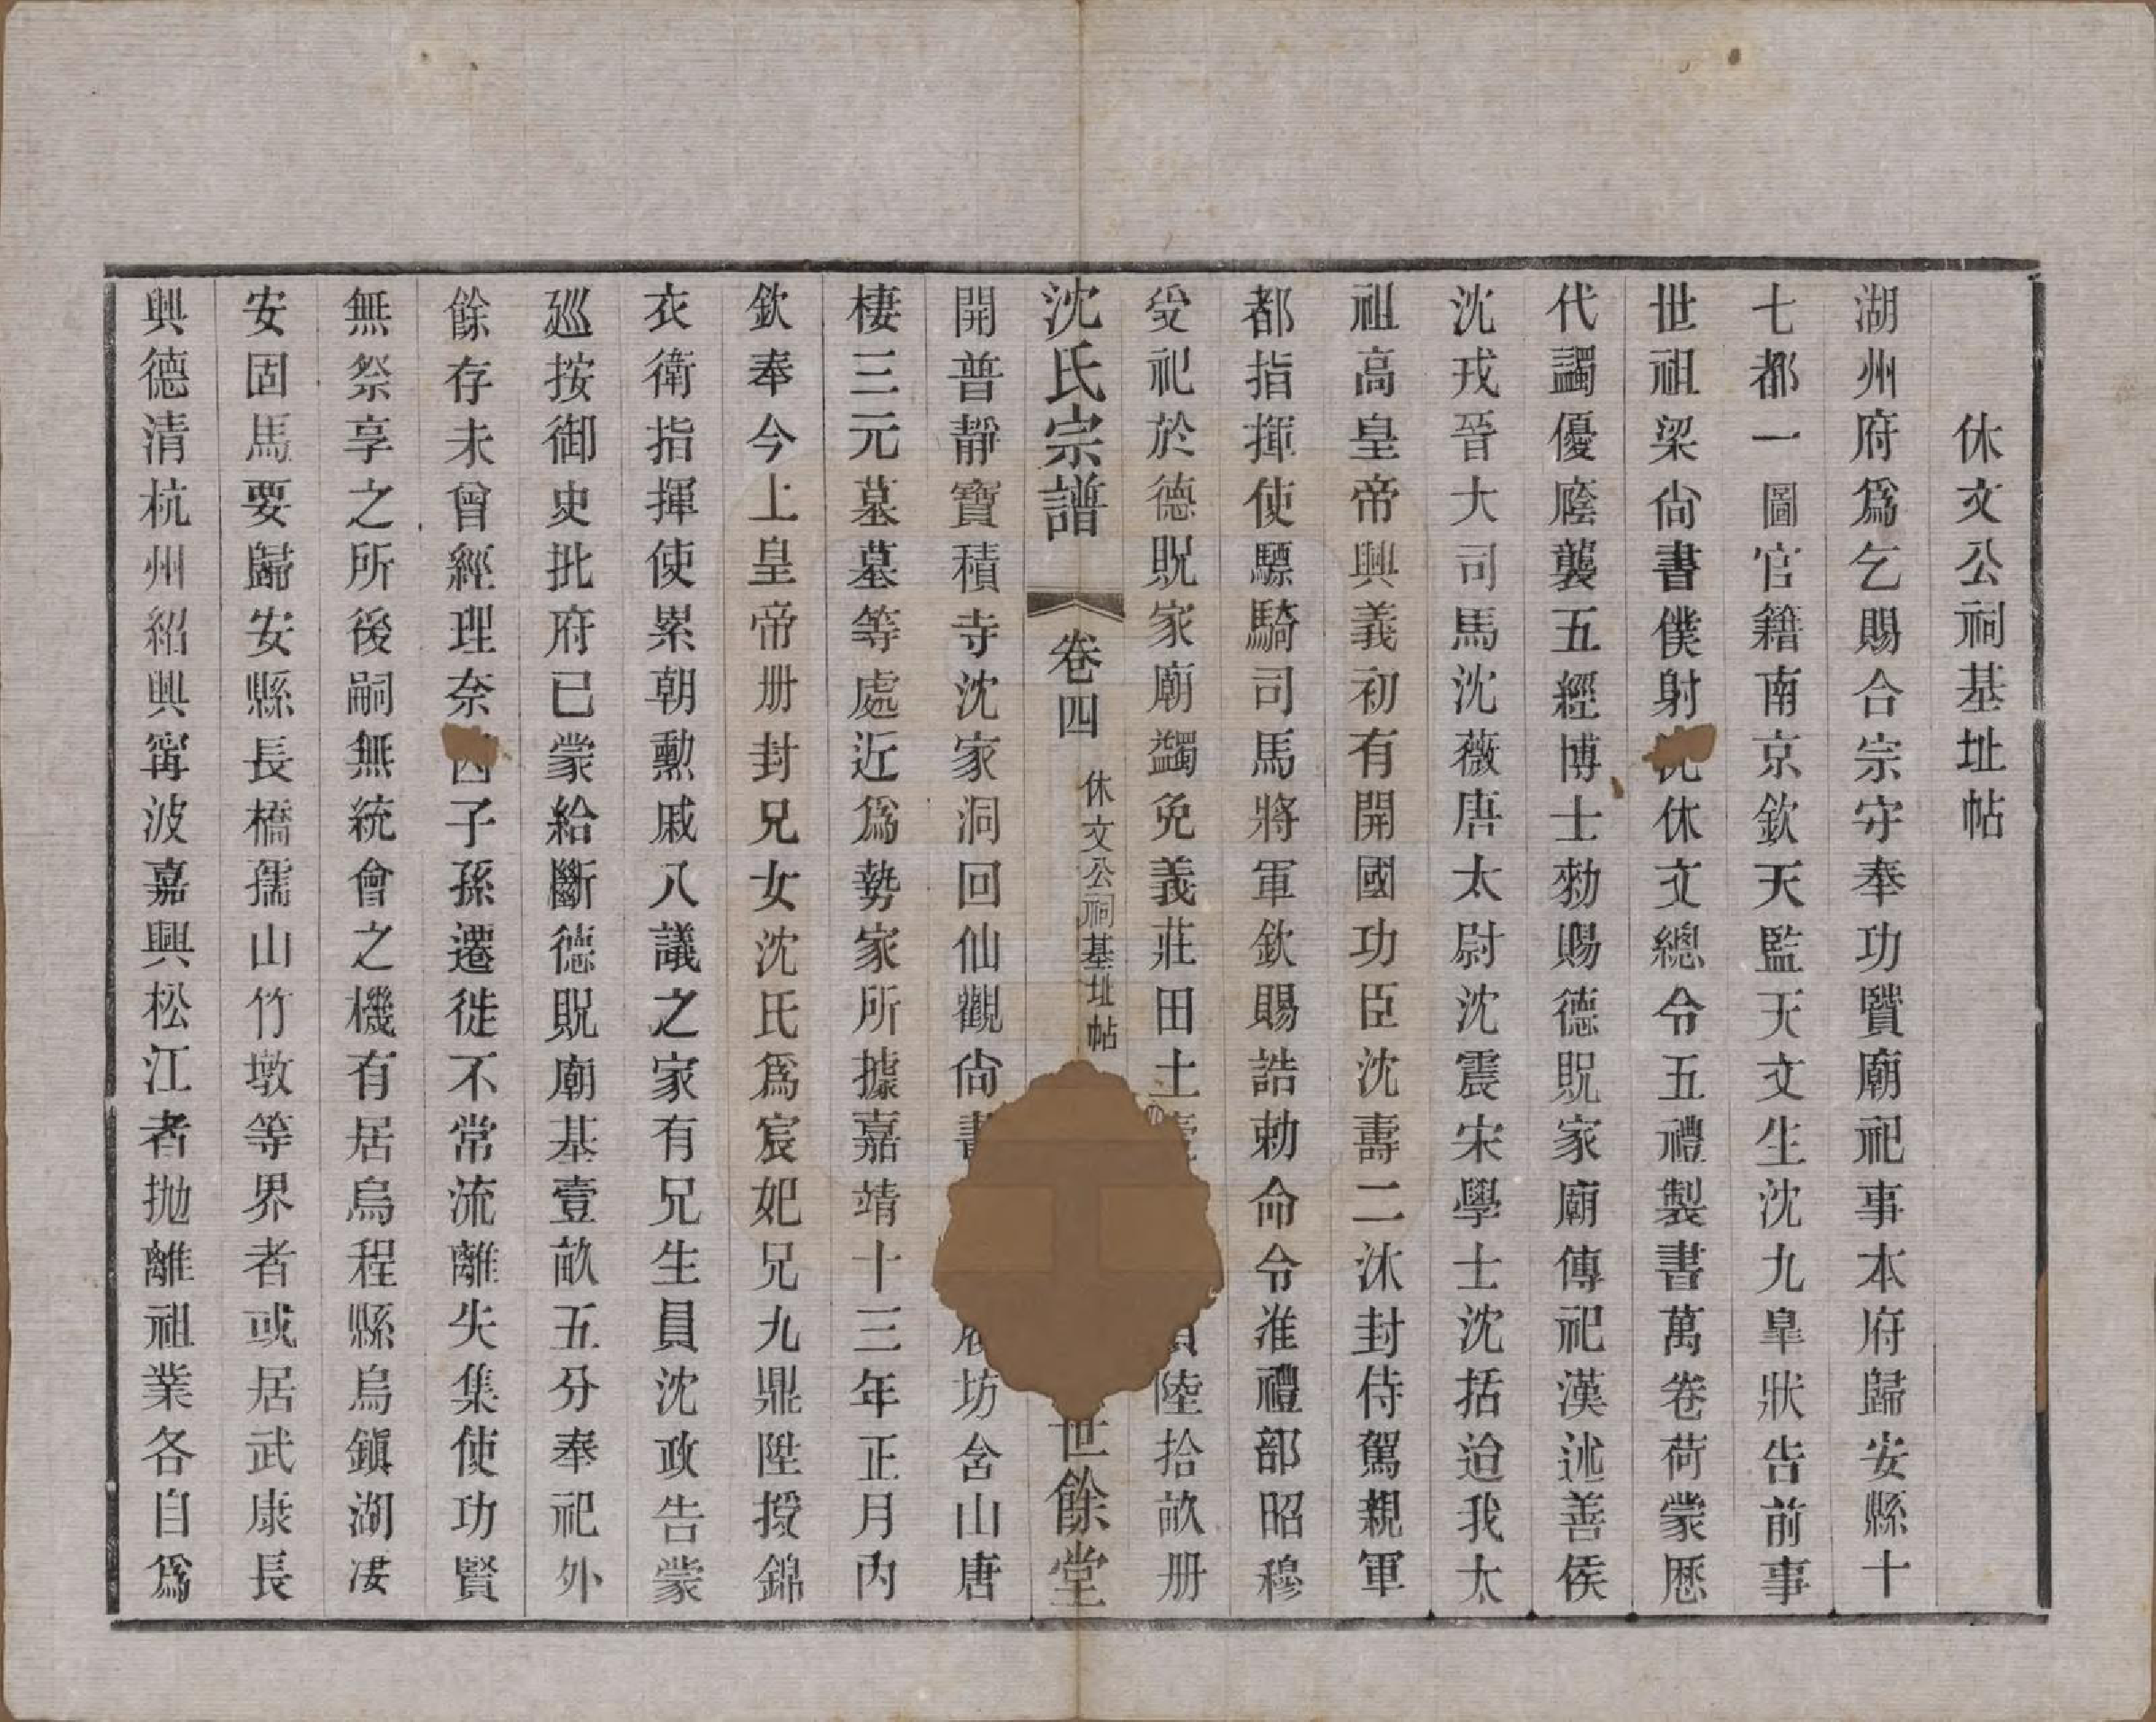 休文公祠基址帖
湖州府爲乞賜合宗守奉功賢廟祀事本府歸安縣十
七都一圖官籍南京欽天監天文生沈九臯狀告前事
世祖梁尙書僕射沈休文總令五禮製書萬卷荷蒙歷
代蠲優廕襲五經博士勑賜德貺家廟傳祀漢述善侯
沈戎晉大司馬沈薇唐太尉沈震宋學士沈括迨我太
祖高皇帝興義初有開國功臣沈壽二沐封侍駕親軍
都指揮使驃騎司馬將軍欽賜誥勅命令准禮部昭穆
受祀於德貺家廟蠲免義莊田土陸拾畝册
沈氏宗譜 卷四 休文公祠基址帖 世餘堂
開普靜寶積寺沈家洞回仙觀尙書坊舍山唐
棲三元墓墓等處近爲勢家所據嘉靖十三年正月內
欽奉今上皇帝册封兄女沈氏爲宸妃兄九鼎陞授錦
衣衛指揮使累朝勳戚八議之家有兄生員沈政告蒙
廵按御史批府已蒙給斷德貺廟基壹畝五分奉祀外
餘存未曾經理奈因子孫遷徙不常流離失集使功賢
無祭享之所後嗣無統會之機有居烏程縣烏鎭湖凄
安固馬要歸安縣長橋孺山竹墩等界者或居武康長
興德清杭州紹興寗波嘉興松江者抛離祖業各自爲